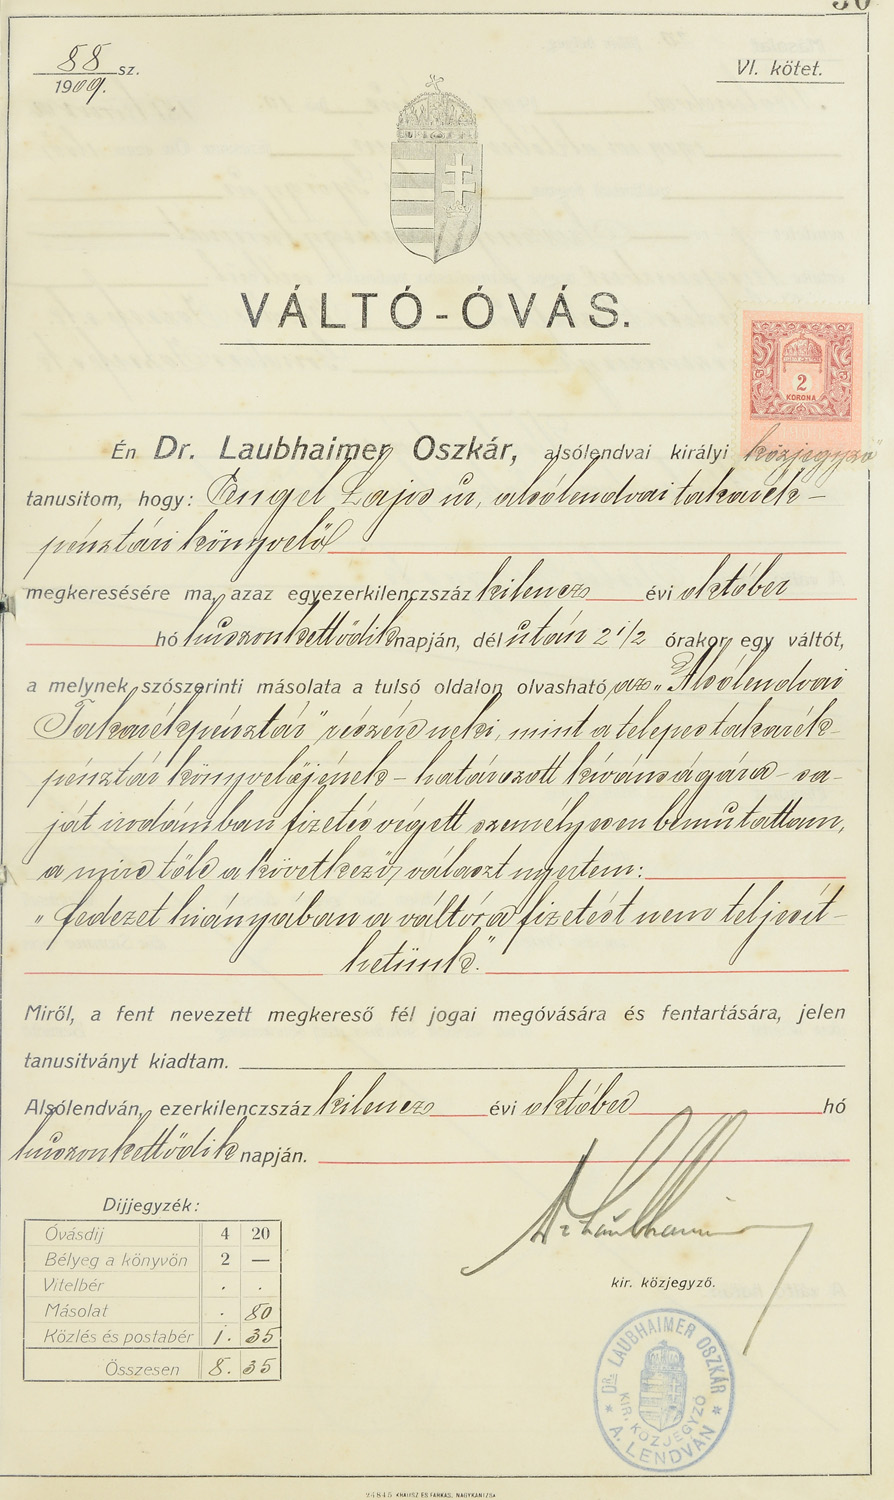 88 sz.
1909.
VI. kötet.
VÁLTÓ-ÓVÁS.
2
KORONA
Én Dr. Laubhaimer Oszkár, alsólendvai királyi közjegyző
tanusitom, hogy: Engel Lajos ur, alsólendvai takarék-
pénztári könyvelő
megkeresésére ma, azaz egyezerkilenczszáz kilencz évi október
hó huszonkettődik napján, dél után 2 1/2 órakor egy váltót,
a melynek szószerinti másolata a tulsó oldalon olvasható, az „Alsólendvai
Takarékpénztár" részére neki, mint a telepes takarék-
pénztár könyvelőjének – határozott kívánságára – sa-
ját irodámban fizetés végett személyesen bemutattam,
a mire tőle a következő választ nyertem:
„fedezet hiányában a váltóra fizetést nem teljesít-
hetünk."
Miről, a fent nevezett megkereső fél jogai megóvására és fentartására, jelen
tanusitványt kiadtam.
Alsólendván, ezerkilenczszáz kilencz évi október hó
huszonkettődik napján.
Dijjegyzék:
Óvásdij 4 20
Bélyeg a könyvön 2 —
Vitelbér . .
Másolat . 80
Közlés és postabér 1. 35
Összesen 8. 35
Dr Laubhaimer
kir. közjegyző.
DR. LAUBHAIMER OSZKÁR
KIR. KÖZJEGYZŐ
* A. LENDVÁN *
24845 KRAUSZ ÉS FARKAS, NAGYKANIZSA